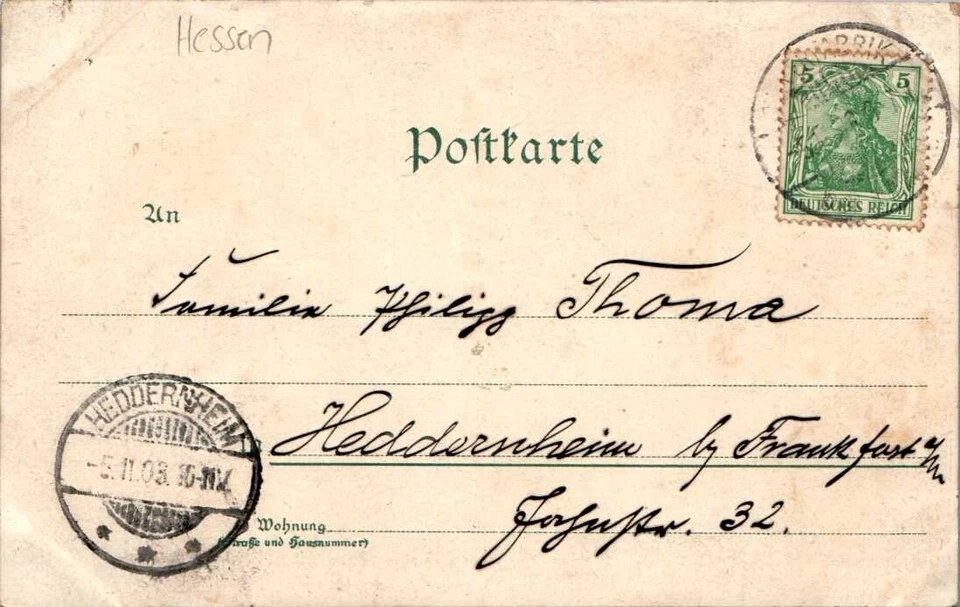 Hessen
Postkarte
5 5
DEUTSCHES REICH
An
Familie Philipp Thoma
HEDDERNHEIM
Heddernheim b/ Frankfort a/M
Wohnung
(Straße und Hausnummer)
32.